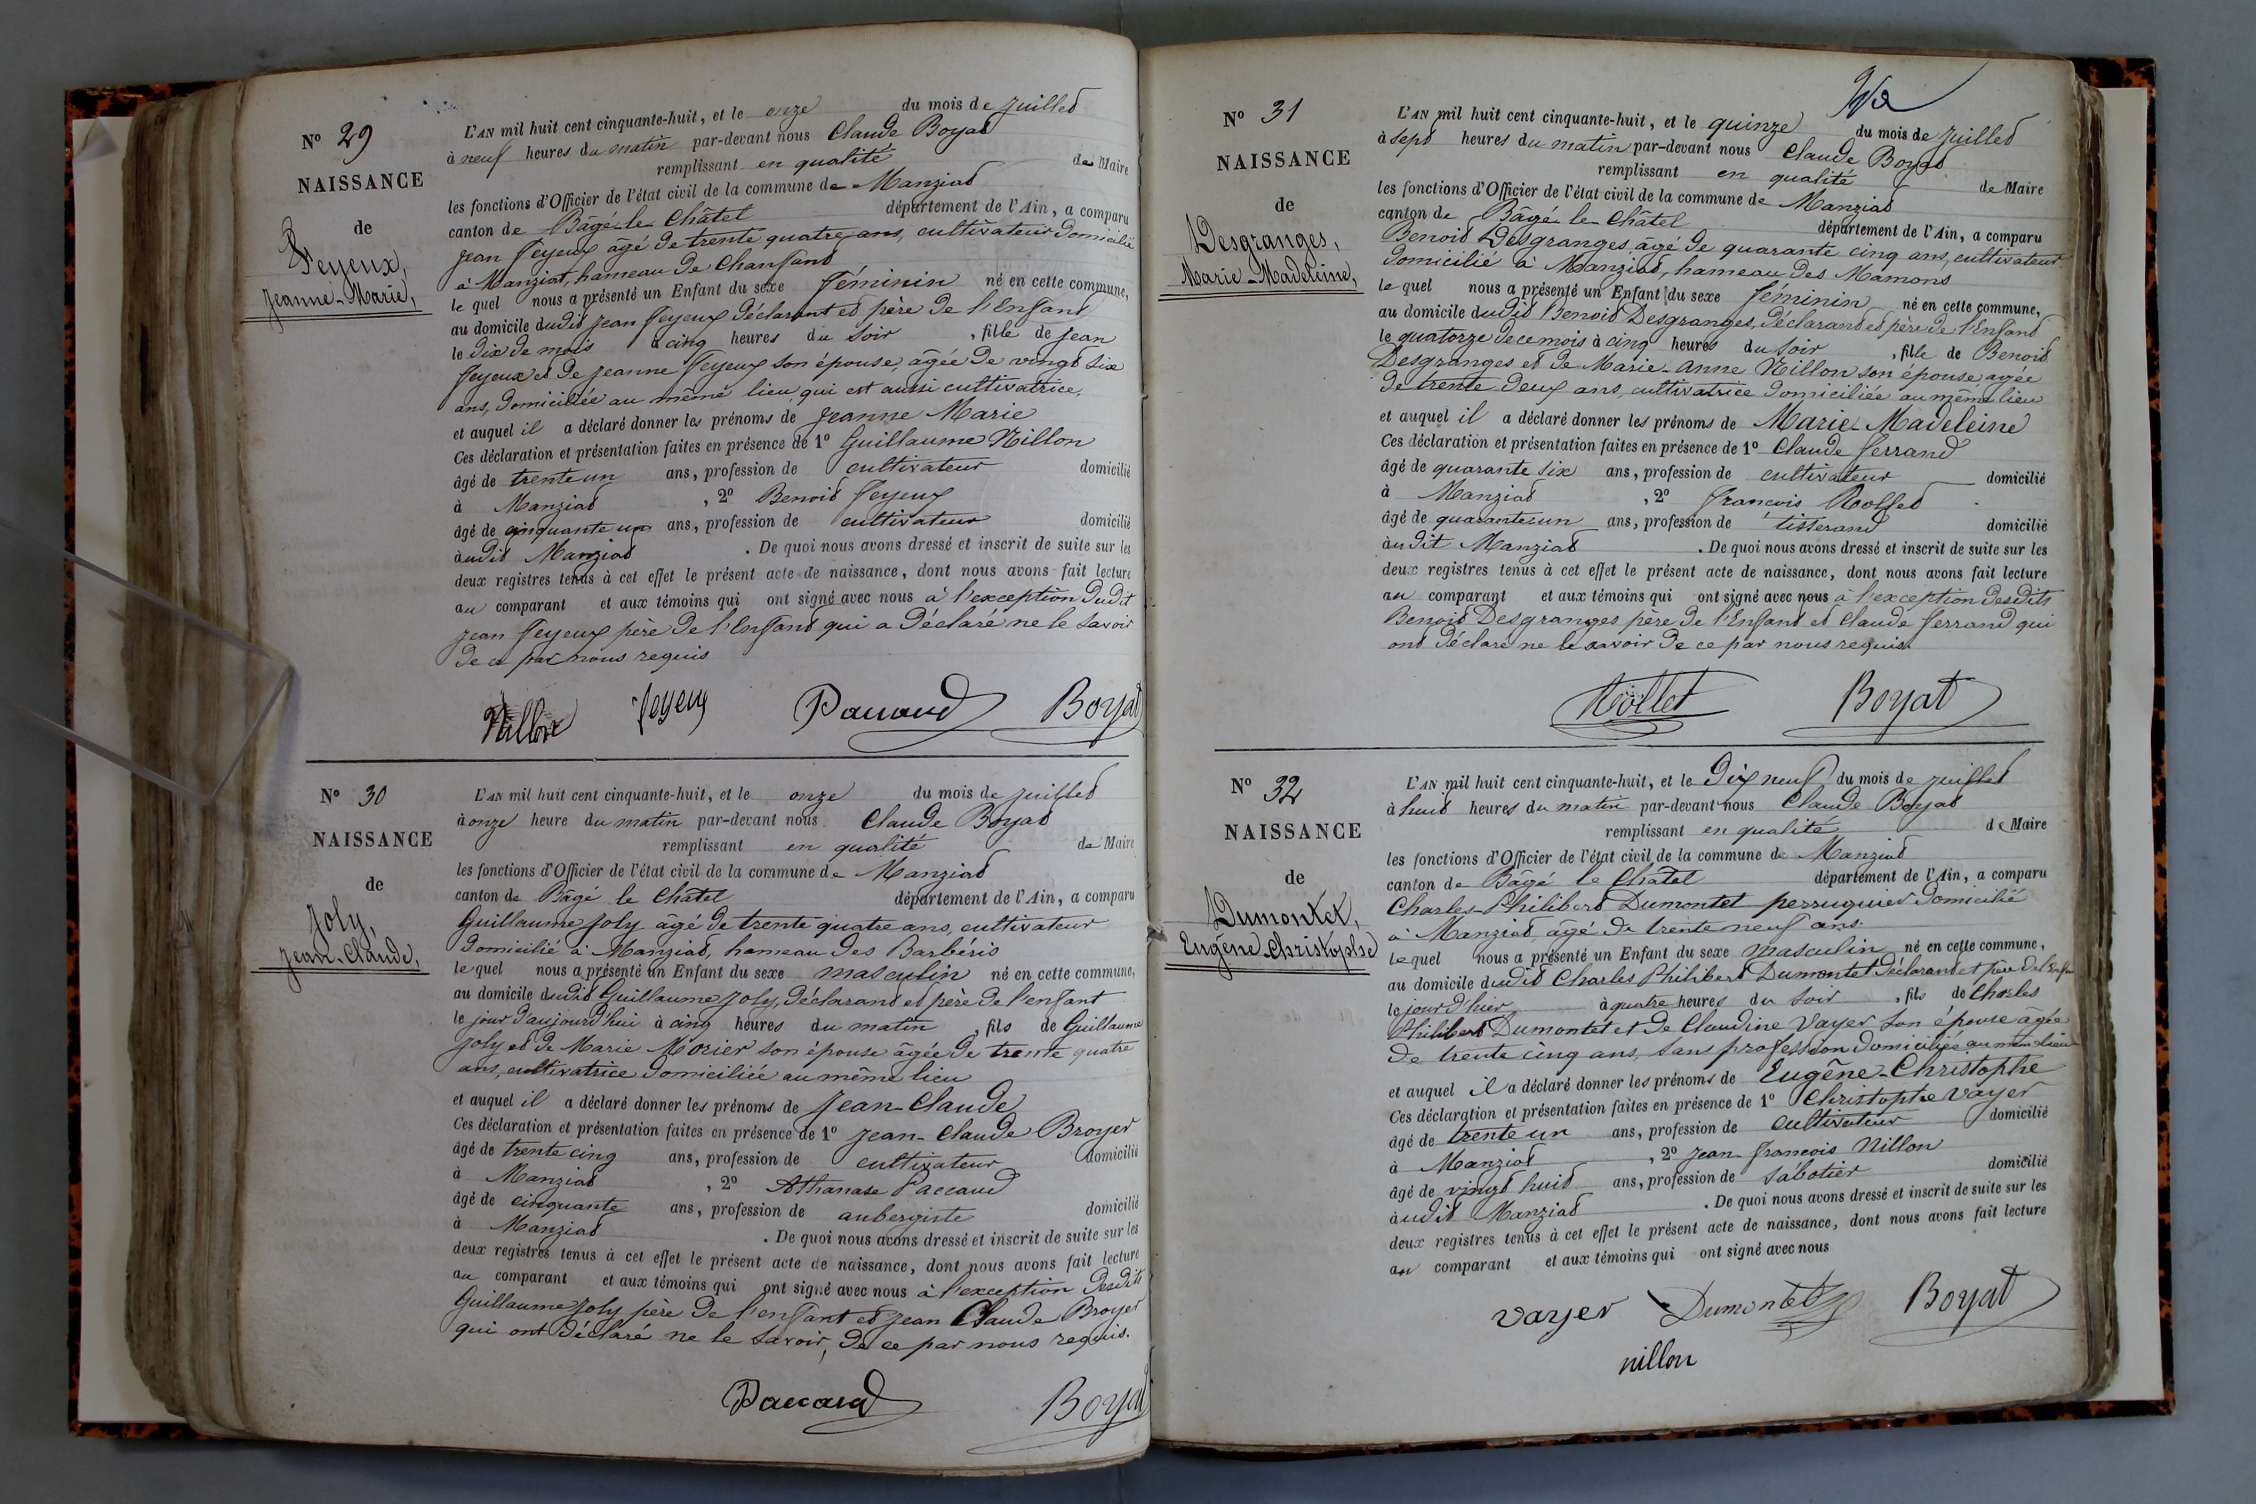 N° 29
NAISSANCE
de
Feyeux,
Jeanne-Marie,
L'AN mil huit cent cinquante-huit, et le onze du mois de juillet
à neuf heures du matin par-devant nous Claude Boyat
remplissant en qualité de Maire
les fonctions d'Officier de l'état civil de la commune de Manziat
canton de Bâgé-le-Châtel département de l'Ain, a comparu
Jean Feyeux âgé de trente quatre ans, cultivateur domicilié
à Manziat, hameau de Chanfant
le quel nous a présenté un Enfant du sexe féminin né en cette commune,
au domicile dudit Jean Feyeux déclarant et père de l'Enfant
le dix de mois à cinq heures du soir, fille de Jean
Feyeux et de Jeanne Feyeux son épouse, âgée de vingt six
ans, domiciliée au même lieu, qui est aussi cultivatrice,
et auquel il a déclaré donner les prénoms de Jeanne Marie
Ces déclaration et présentation faites en présence de 1° Guillaume Nillon
âgé de trente un ans, profession de cultivateur domicilié
à Manziat, 2° Benoit Feyeux
âgé de cinquante un ans, profession de cultivateur domicilié
àudit Manziat. De quoi nous avons dressé et inscrit de suite sur les
deux registres tenus à cet effet le présent acte de naissance, dont nous avons fait lecture
au comparant et aux témoins qui ont signé avec nous à l'exception dudit
Jean Feyeux père de l'Enfant qui a déclaré ne le savoir
de ce par nous requis
Nillon Feyeux Paccaud Boyat
N° 30
NAISSANCE
de
Joly,
Jean-Claude,
L'AN mil huit cent cinquante-huit, et le onze du mois de juillet
à onze heure du matin par-devant nous Claude Boyat
remplissant en qualité de Maire
les fonctions d'Officier de l'état civil de la commune de Manziat
canton de Bâgé le Châtel département de l'Ain, a comparu
Guillaume Joly âgé de trente quatre ans, cultivateur
domicilié à Manziat, hameau des Barbéris
le quel nous a présenté un Enfant du sexe masculin né en cette commune,
au domicile dudit Guillaume Joly, déclarant et père de l'enfant
le jour d'aujourd'hui à cinq heures du matin, fils de Guillaume
Joly et de Marie Morier son épouse âgée de trente quatre
ans, cultivatrice domiciliée au même lieu
et auquel il a déclaré donner les prénoms de Jean-Claude
Ces déclaration et présentation faites en présence de 1° Jean-Claude Broyer
âgé de trente cinq ans, profession de cultivateur domicilié
à Manziat, 2° Athanase Paccaud
âgé de cinquante ans, profession de aubergiste domicilié
à Manziat. De quoi nous avons dressé et inscrit de suite sur les
deux registres tenus à cet effet le présent acte de naissance, dont nous avons fait lecture
au comparant et aux témoins qui ont signé avec nous à l'exception desdits
Guillaume Joly père de l'enfant et Jean Claude Broyer
qui ont déclaré ne le savoir, de ce par nous requis.
Paccaud Boyat
N° 31
NAISSANCE
de
Desgranges,
Marie-Madeleine,
L'AN mil huit cent cinquante-huit, et le quinze du mois de juillet
à sept heures du matin par-devant nous Claude Boyat
remplissant en qualité de Maire
les fonctions d'Officier de l'état civil de la commune de Manziat
canton de Bâgé le Châtel département de l'Ain, a comparu
Benoit Desgranges âgé de quarante cinq ans, cultivateur
domicilié à Manziat, hameau des Mamons
le quel nous a présenté un Enfant du sexe féminin né en cette commune,
au domicile dudit Benoit Desgranges, déclarant et père de l'Enfant
le quatorze de ce mois à cinq heures du soir, fille de Benoit
Desgranges et de Marie-Anne Nillon son épouse agée
de trente deux ans, cultivatrice domiciliée au même lieu
et auquel il a déclaré donner les prénoms de Marie-Madeleine
Ces déclaration et présentation faites en présence de 1° Claude Ferrand
âgé de quarante six ans, profession de cultivateur domicilié
à Manziat, 2° François Rollet
âgé de quarante un ans, profession de tisserand domicilié
àudit Manziat. De quoi nous avons dressé et inscrit de suite sur les
deux registres tenus à cet effet le présent acte de naissance, dont nous avons fait lecture
au comparant et aux témoins qui ont signé avec nous à l'exception desdits
Benoit Desgranges père de l'Enfant et Claude Ferrand qui
ont déclaré ne le savoir de ce par nous requis.
Rollet Boyat
N° 32
NAISSANCE
de
Dumontet,
Eugène-Christophe
L'AN mil huit cent cinquante-huit, et le dix neuf du mois de juillet
à huit heures du matin par-devant nous Claude Boyat
remplissant en qualité de Maire
les fonctions d'Officier de l'état civil de la commune de Manziat
canton de Bâgé le Châtel département de l'Ain, a comparu
Charles-Philibert Dumontet perruquier domicilié
à Manziat âgé de trente neuf ans
le quel nous a présenté un Enfant du sexe masculin né en cette commune,
au domicile dudit Charles Philibert Dumontet déclarant et père de l'Enfan
le jour d'hier à quatre heures du soir, fils de Charles
Philibert Dumontet et de Claudine Vayer son épouse âgée
de trente cinq ans, sans profession domiciliée au même lieu
et auquel il a déclaré donner les prénoms de Eugène-Christophe
Ces déclaration et présentation faites en présence de 1° Christophe Vayer
âgé de trente un ans, profession de cultivateur domicilié
à Manziat, 2° Jean-François Nillon
âgé de vingt huit ans, profession de sabotier domicilié
àudit Manziat. De quoi nous avons dressé et inscrit de suite sur les
deux registres tenus à cet effet le présent acte de naissance, dont nous avons fait lecture
au comparant et aux témoins qui ont signé avec nous
Vayer Dumontet Boyat
nillon